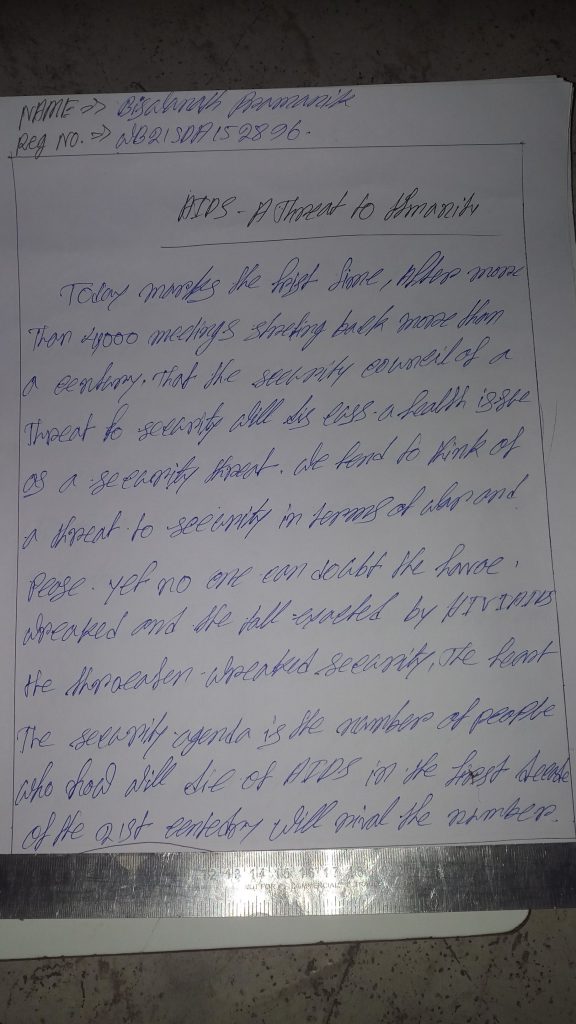 NAME => Bisahnath Pramanik
Reg NO. => WB21SDA152896.
AIDS - A Threat to Humanity
Today markes the first time, After more
Than 4000 meetings streting back more than
a century. That the security council of a
Threat to security will dis cuss a health issue
as a security threat. We tend to think of
a threat to security in terms of war and
Pease. yet no one can doubt the havoe.
wreaked and the tall exacted by HIV/AIDS
the threaten wreaked security, The heart
The security agenda is the number of people
who will die of AIDS in the first decade
of the 21st centedry will rival the number.
12 13 14 15 16 17